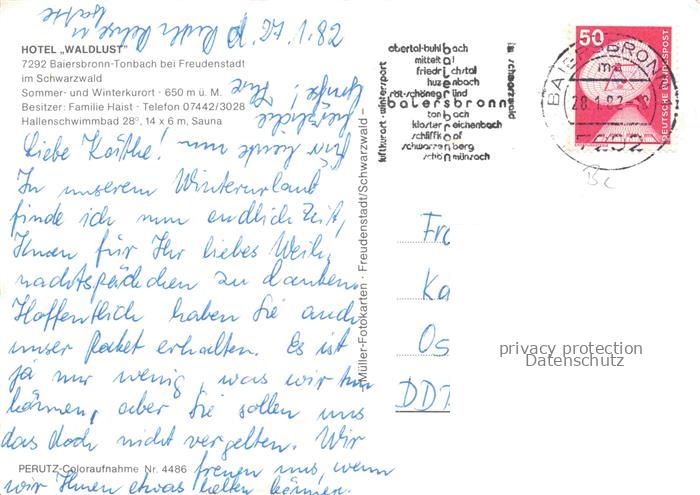 d. 27.1.82
HOTEL „WALDLUST"
7292 Baiersbronn-Tonbach bei Freudenstadt
im Schwarzwald
Sommer- und Winterkurort · 650 m ü. M.
Besitzer: Familie Haist · Telefon 07442/3028
Hallenschwimmbad 28°, 14 x 6 m, Sauna
Liebe Käthe!
In unserem Winterurlaub
finde ich nun endlich Zeit,
Ihnen für Ihr liebes Weih-
nachtspäckchen zu danken.
Hoffentlich haben Sie auch
unser Paket erhalten. Es ist
ja nur wenig, was wir tun
können, aber Sie sollen uns
das doch nicht vergelten. Wir
freuen uns, wenn
wir Ihnen etwas helfen können.
Für heute nun
herzliche
Grüße! Ihre
PERUTZ-Coloraufnahme Nr. 4486
Müller-Fotokarten · Freudenstadt/Schwarzwald –
luftkurort · wintersport
obertal-buhlbach
mitteltal
friedrichstal
huzenbach
röt-schönegründ
baiersbronn
tonbach
klosterreichenbach
schliffkopf
schwarzenberg
schönmünzach
im schwarzwald
50
DEUTSCHE BUNDESPOST
BAIERSBRONN
28.1.82-18
7292
Bc
Fr
Ka
Os
DDR
privacy protection
Datenschutz